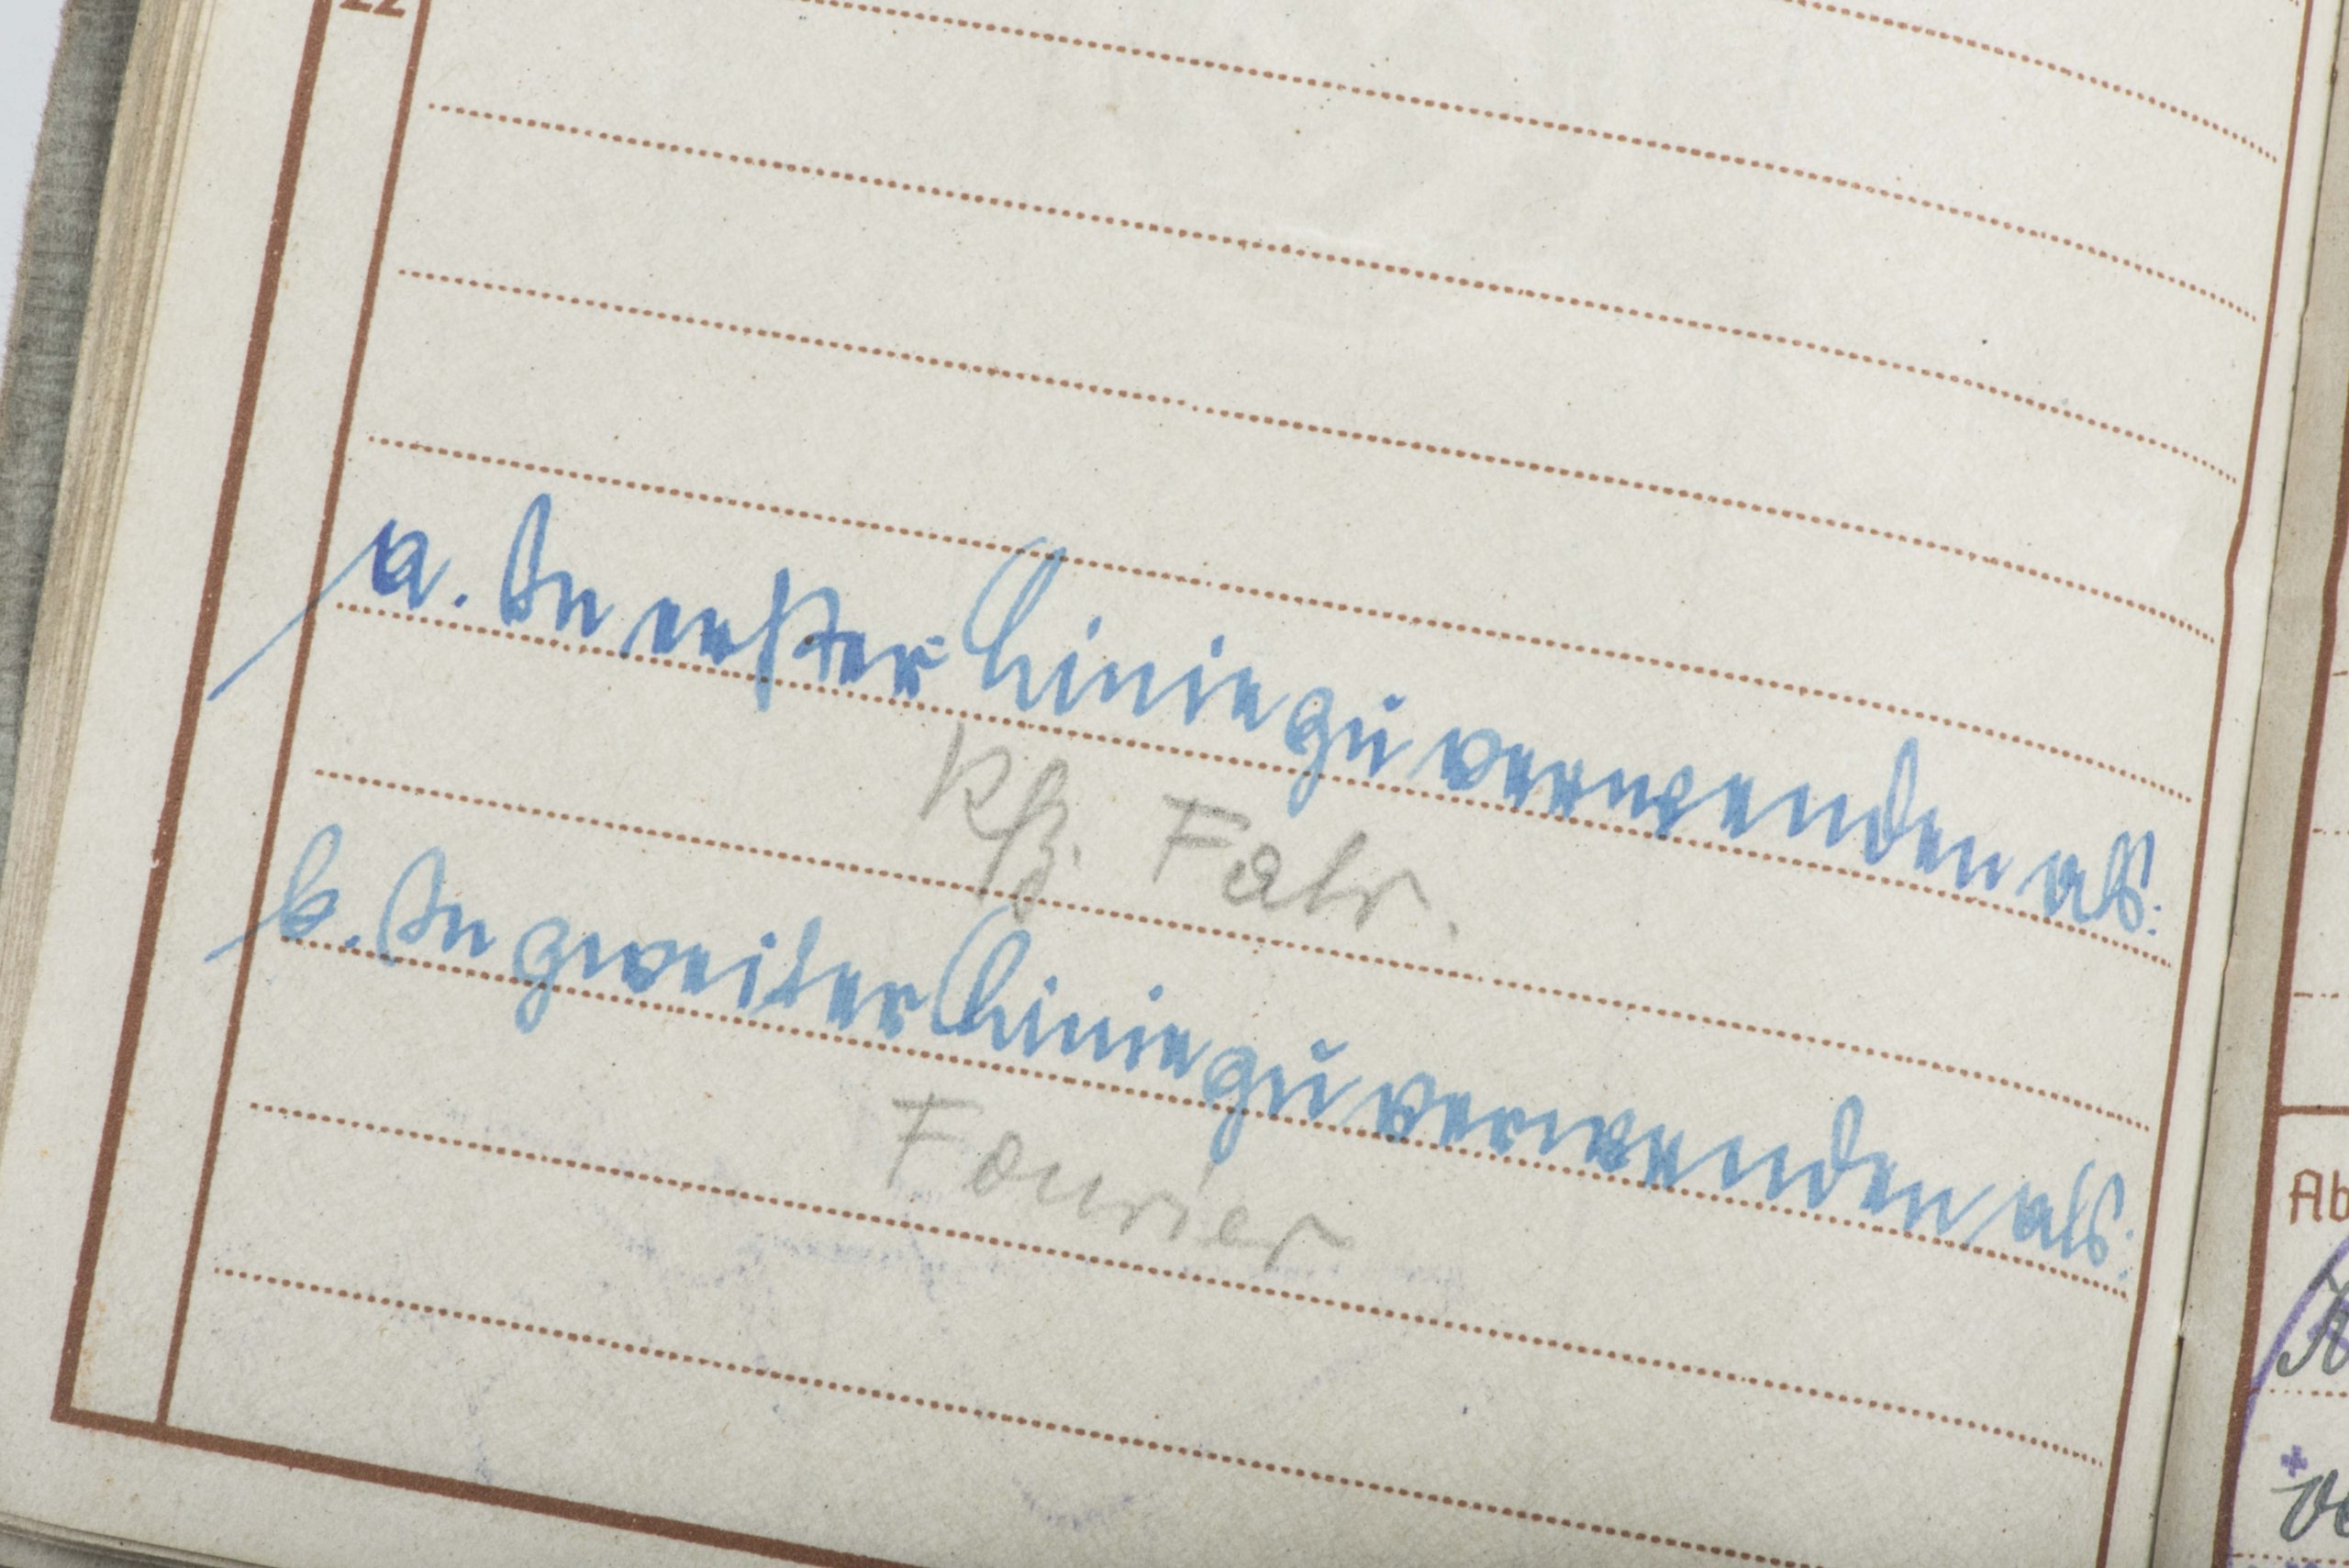 22
a. In erster Linie zu verwenden als:
Kfz. Fahr.
b. In zweiter Linie zu verwenden als:
Fourier
Ab